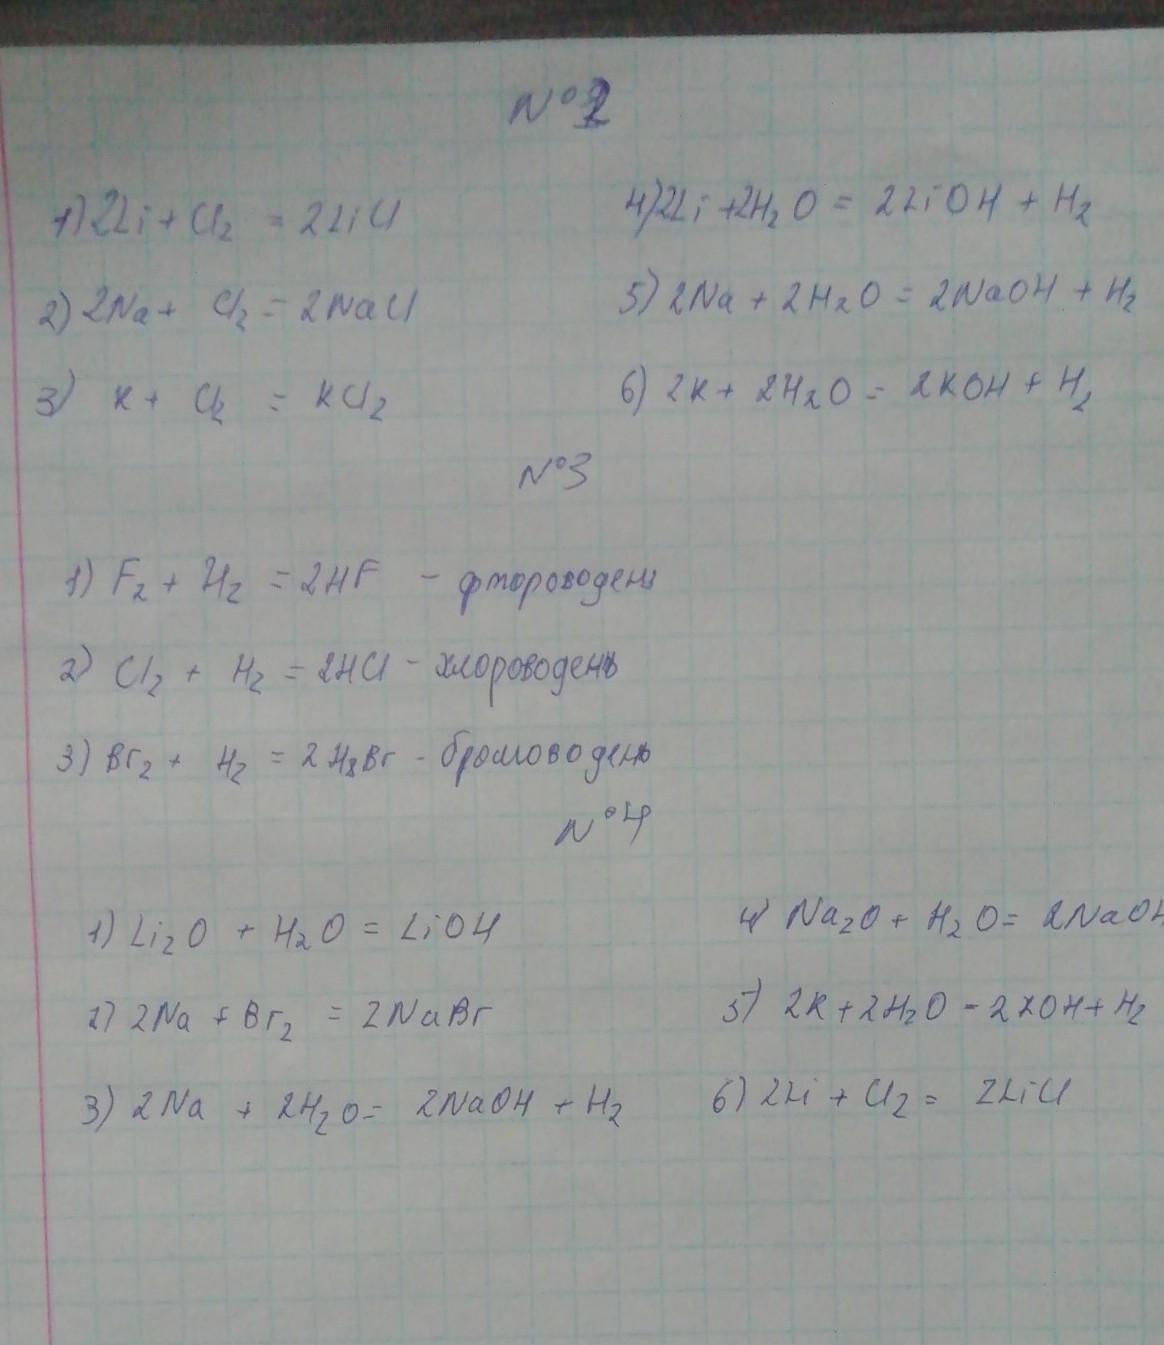 №2
1) 2Li + Cl₂ = 2LiCl
2) 2Na + Cl₂ = 2NaCl
3) K + Cl₂ = KCl₂
4) 2Li + 2H₂O = 2LiOH + H₂
5) 2Na + 2H₂O = 2NaOH + H₂
6) 2K + 2H₂O = 2KOH + H₂
№3
1) F₂ + H₂ = 2HF - фтороводень
2) Cl₂ + H₂ = 2HCl - хлороводень
3) Br₂ + H₂ = 2HBr - бромоводень
№4
1) Li₂O + H₂O = LiOH
2) 2Na + Br₂ = 2NaBr
3) 2Na + 2H₂O = 2NaOH + H₂
4) Na₂O + H₂O = 2NaOH
5) 2K + 2H₂O - 2KOH + H₂
6) 2Li + Cl₂ = 2LiCl